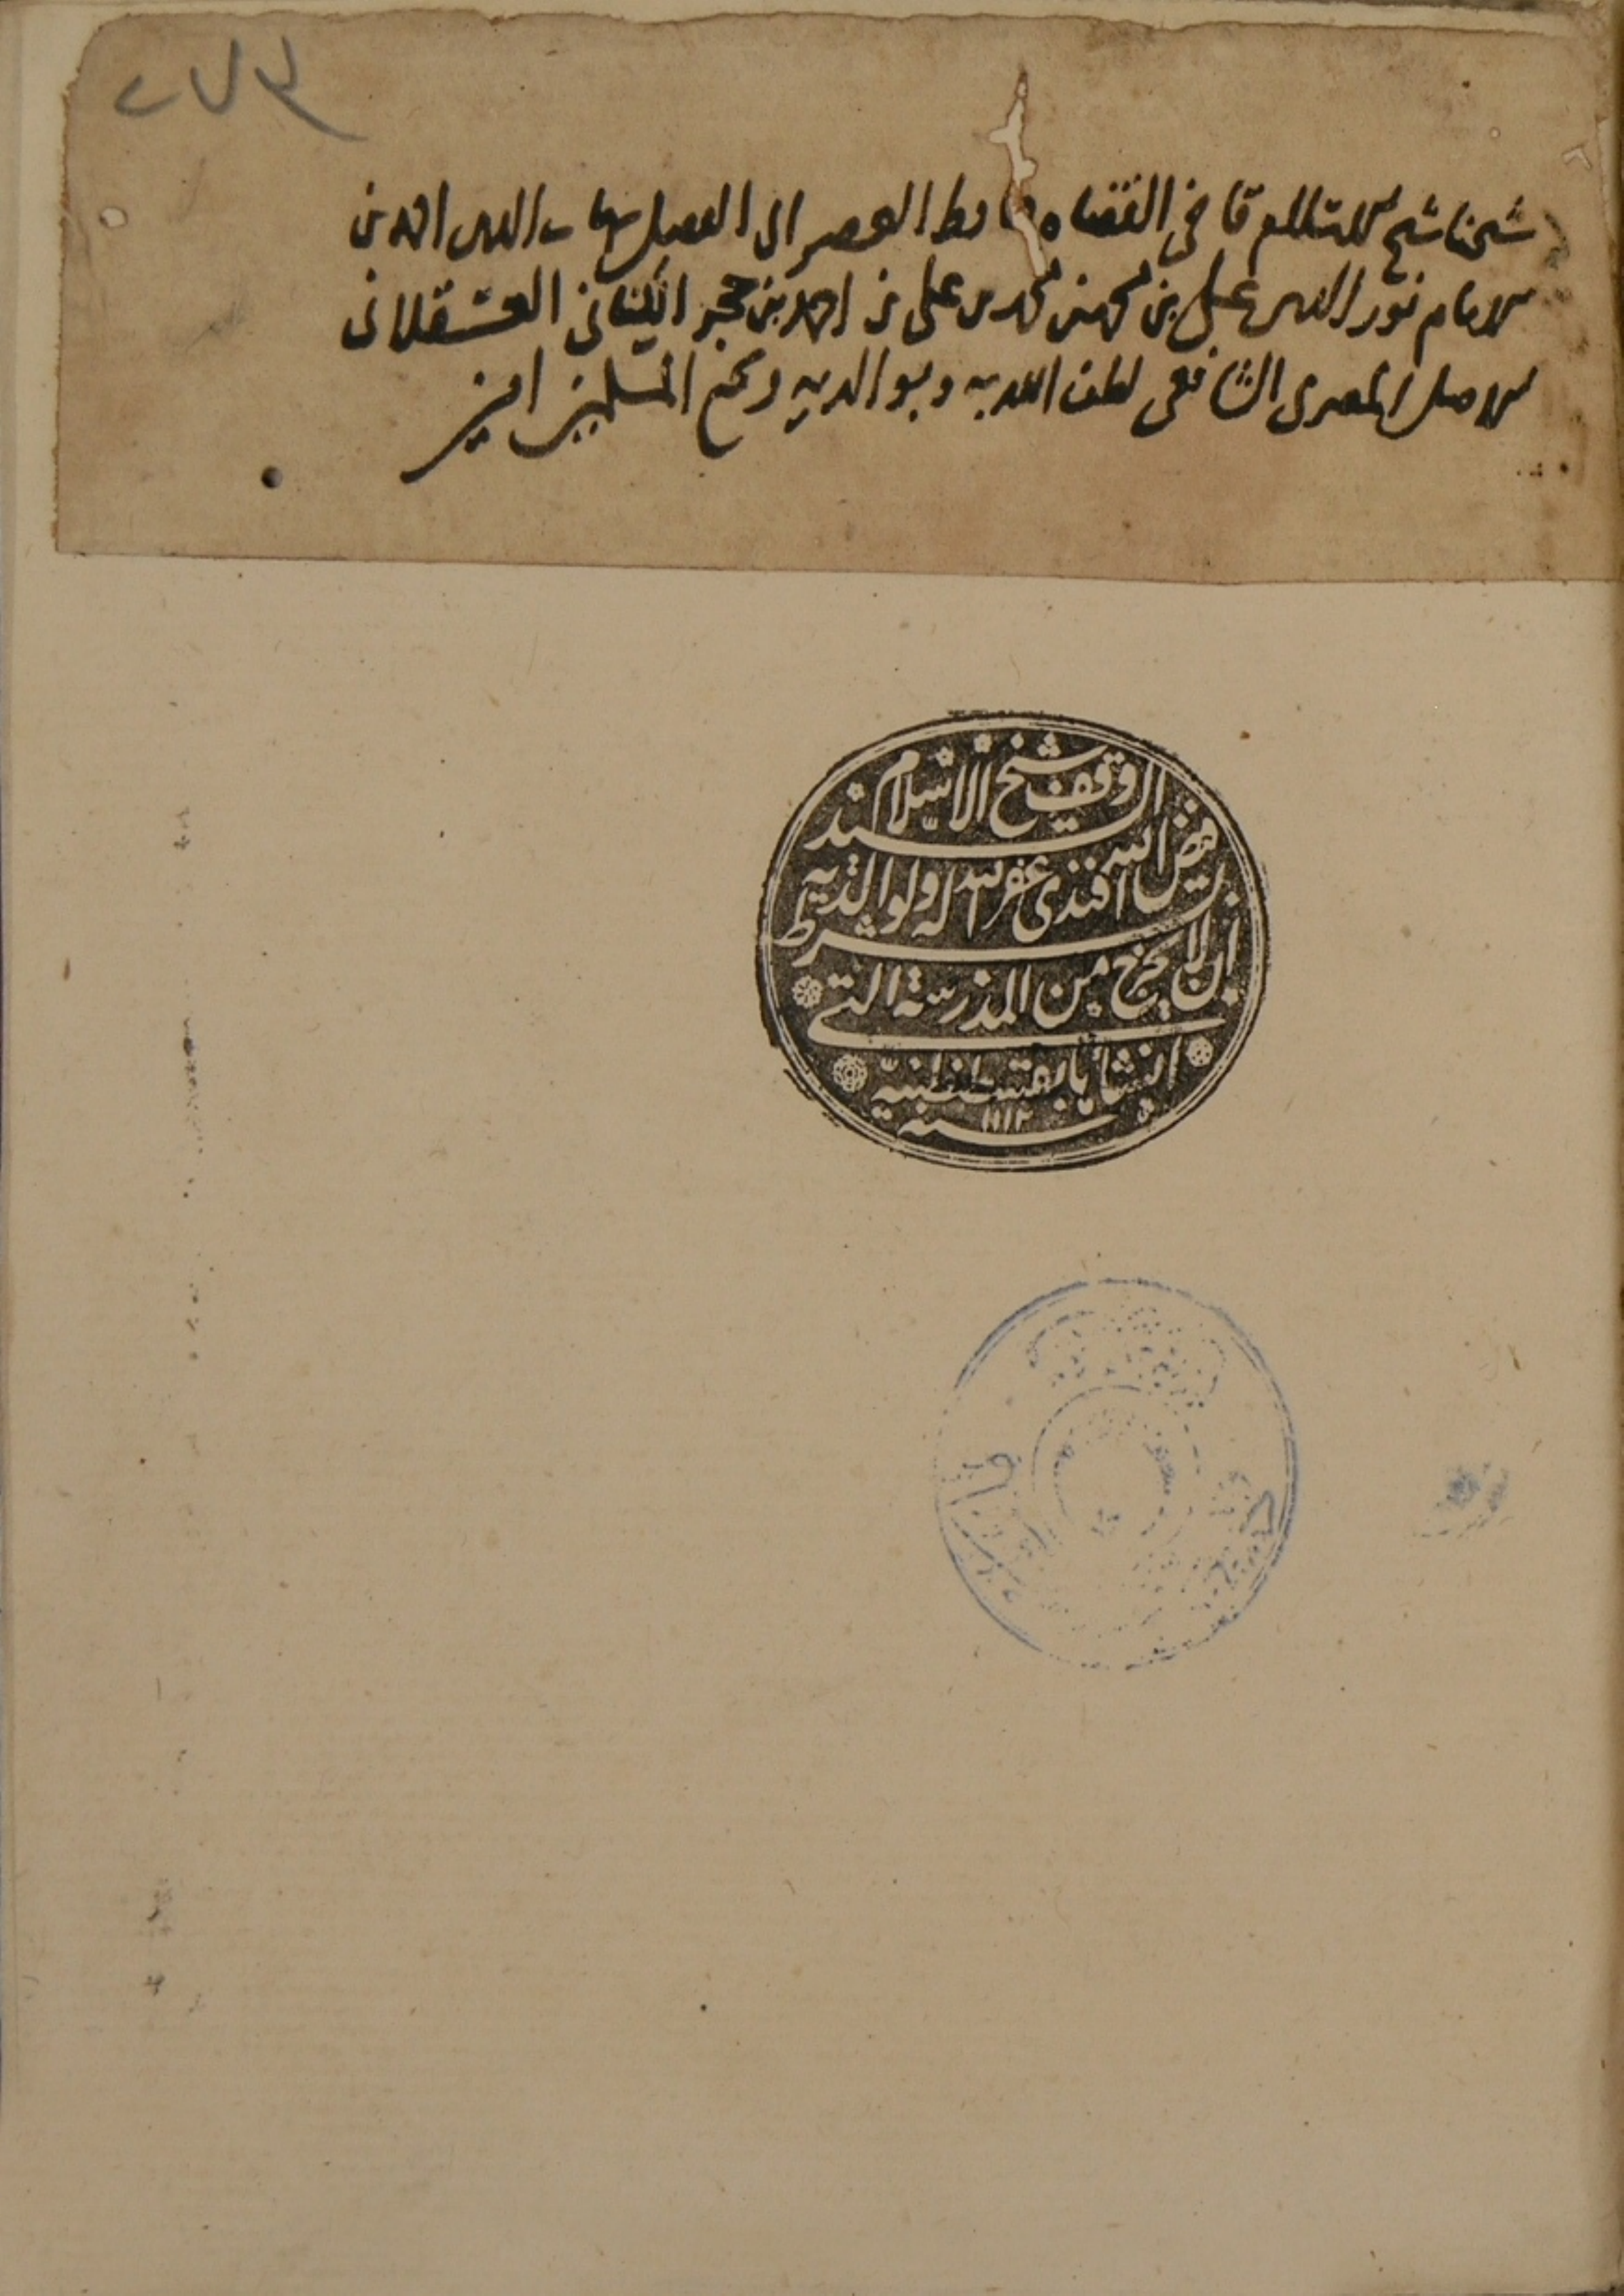 ٢٧٣
شيخنا شيخ الاسلام قاضى القضاه حافظ العصر ابى الفضل شهاب الدين احمد بن
الامام نور الدين على بن محمد بن محمد بن على بن احمد بن حجر الكنانى العسقلانى
الاصل المصرى الشافعى لطف الله به وبوالديه وبجميع المسلمين امين
وقف شيخ الاسلام السيد
فيض الله افندى غفر الله له ولوالديه
بشرط
ان لا يخرج من المدرسة التى
انشأها بقسطنطنية
سنه ١١١٢